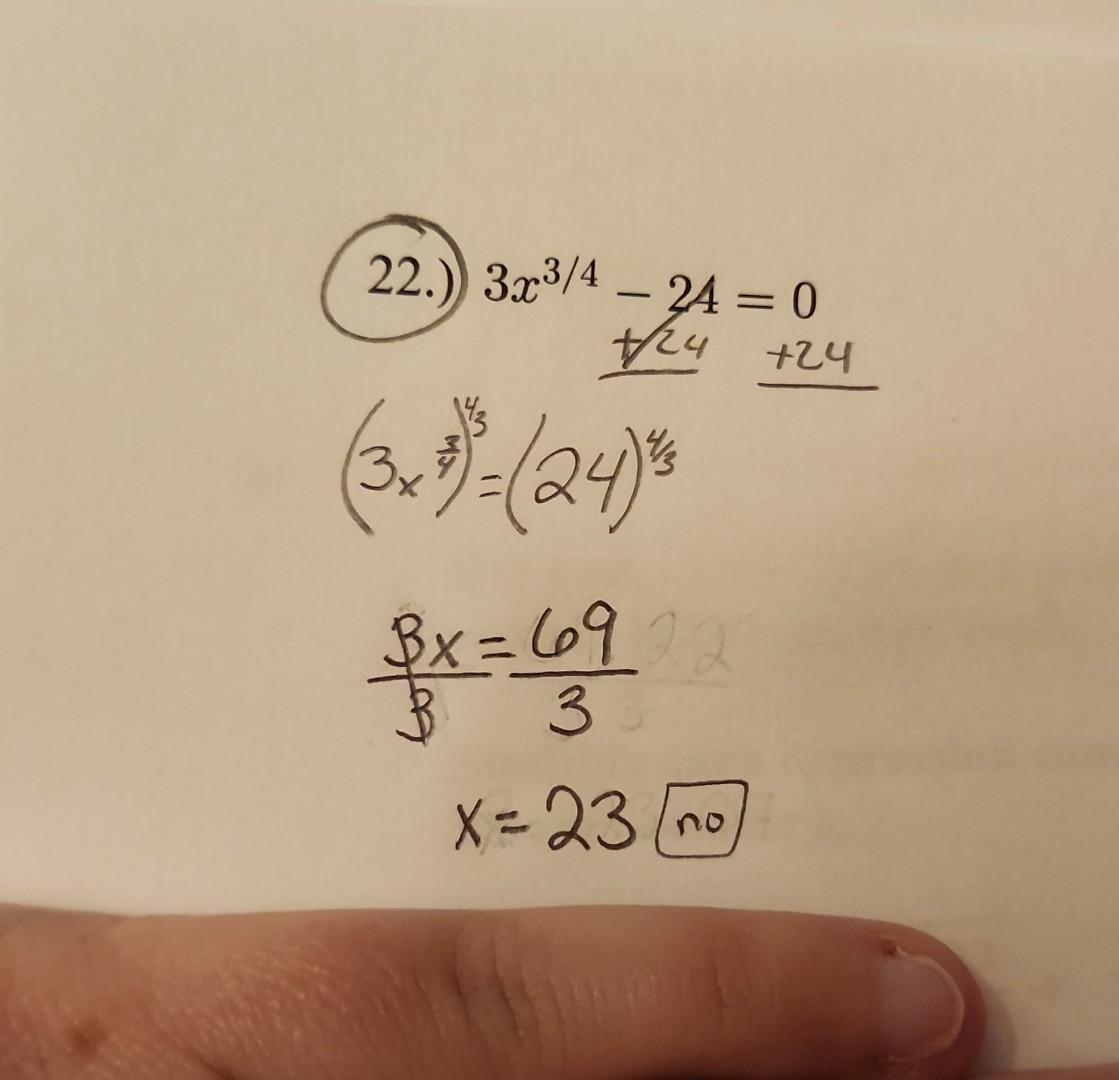 22.) 3x^{3/4} − 24 = 0
+24 +24
(3x^{3/4})^{4/3} = (24)^{4/3}
3x = 69
3 3
x = 23 no